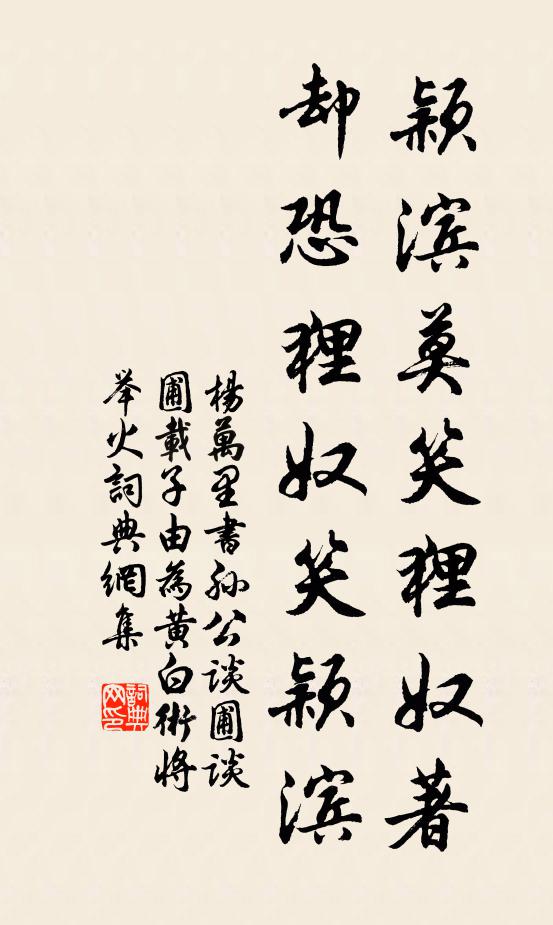 颖滨莫笑狸奴著
却恐狸奴笑颖滨
楊萬里書孙公談圃談
圃載子由為黄白術將
举火詞典網集
詞典网印